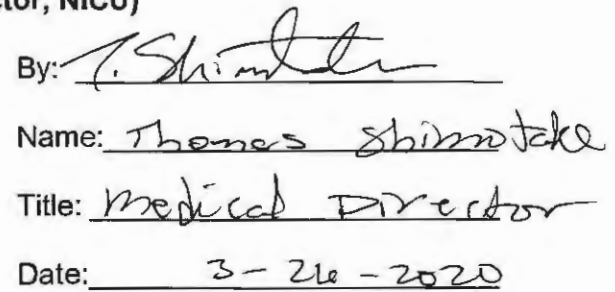 ctor, NICU)
By: T. Shimotake
Name: Thomas Shimotake
Title: Medical Director
Date: 3-26-2020